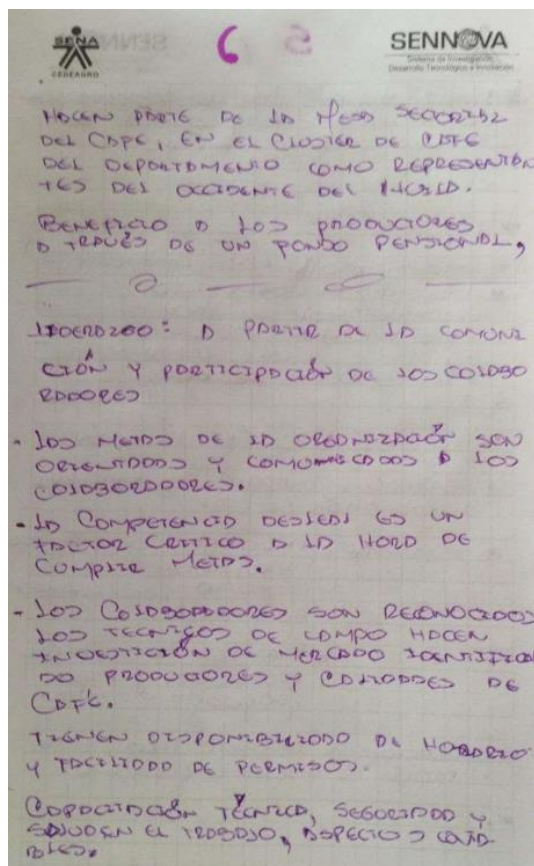 SENA
CEDEAGRO
6
SENNOVA
Sistema de Investigación,
Desarrollo Tecnológico e Innovación
HACEN PARTE DE LA MESA SECTORIAL
DEL CAFE, EN EL CLUSTER DE CAFE
DEL DEPARTAMENTO COMO REPRESENTAN
TES DEL OCCIDENTE DEL HUILA.
BENEFICIO A LOS PRODUCTORES
A TRAVÉS DE UN FONDO PENSIONAL,
LIDERAZGO: A PARTIR DE LA COMUNI
CIÓN Y PARTICIPACIÓN DE LOS COLABO
RADORES
- LAS METAS DE LA ORGANIZACIÓN SON
ORIENTADAS Y COMUNICADAS A LOS
COLABORADORES.
- LA COMPETENCIA DESLEAL ES UN
FACTOR CRITICO A LA HORA DE
CUMPLIR METAS.
- LOS COLABORADORES SON RECONOCIDOS
LOS TECNICOS DE CAMPO HACEN
DE MERCADO IDENTIFICAN
DO PRODUCTORES Y CALIDADES DE
CAFÉ.
TIENEN DISPONIBILIDAD DE HORARIO
Y FACILIDAD DE PERMISOS.
CAPACITACIÓN TÉCNICA, SEGURIDAD Y
SALUD EN EL TRABAJO, ASPECTOS CONTA
BLES.